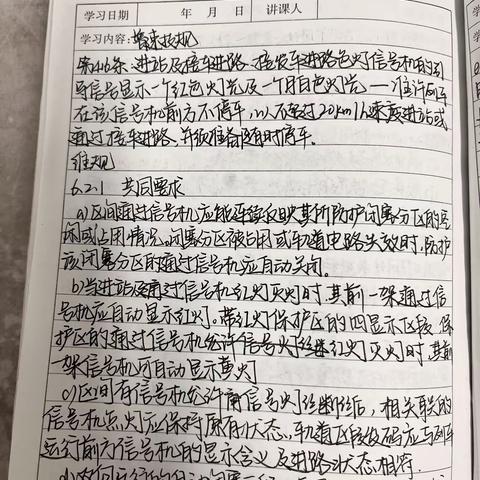 学习日期 年 月 日 讲课人
学习内容: 技规
第416条 进站及接车进路、接发车进路色灯信号机的引
导信号显示一个红色灯光及一个月白色灯光——准许列车
在该信号机前方不停车,以不超过20km/h速度进站或
通过接车进路,并须准备随时停车。
维规
6.2.1 共同要求
a)区间通过信号机应能连续反映其所防护闭塞分区的空
闲或占用情况。闭塞分区被占用或轨道电路失效时,防护
该闭塞分区的通过信号机应自动关闭。
b)当进站及通过信号机红灯灭灯时,其前一架通过信
号机应自动显示红灯。带红灯保护区的四显示区段,保
护区的通过信号机允许信号灯丝红灯灭灯时,其前
一架信号机可自动显示黄灯
c)区间有信号机允许信号灯丝断丝后,相关联的
信号机点灯应保持原有状态。轨道区段发码应与列车
运行前方信号机的显示含义及进路状态相符。